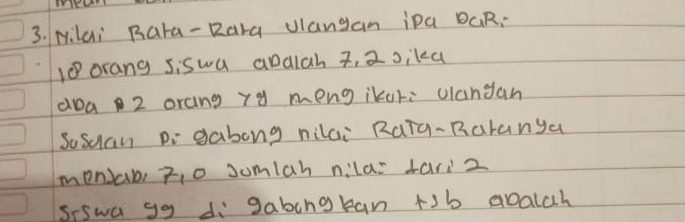 3. Nilai Rata-Rata Ulangan ipa DaRi
18 orang siswa adalah 7,2 jika
ada 2 orang yg mengikuti ulangan
Susulan Di gabong nilai Rata-Ratanya
menjadi 7,0 Jumlah nilai dari 2
siswa yg di gabongkan tsb adalah